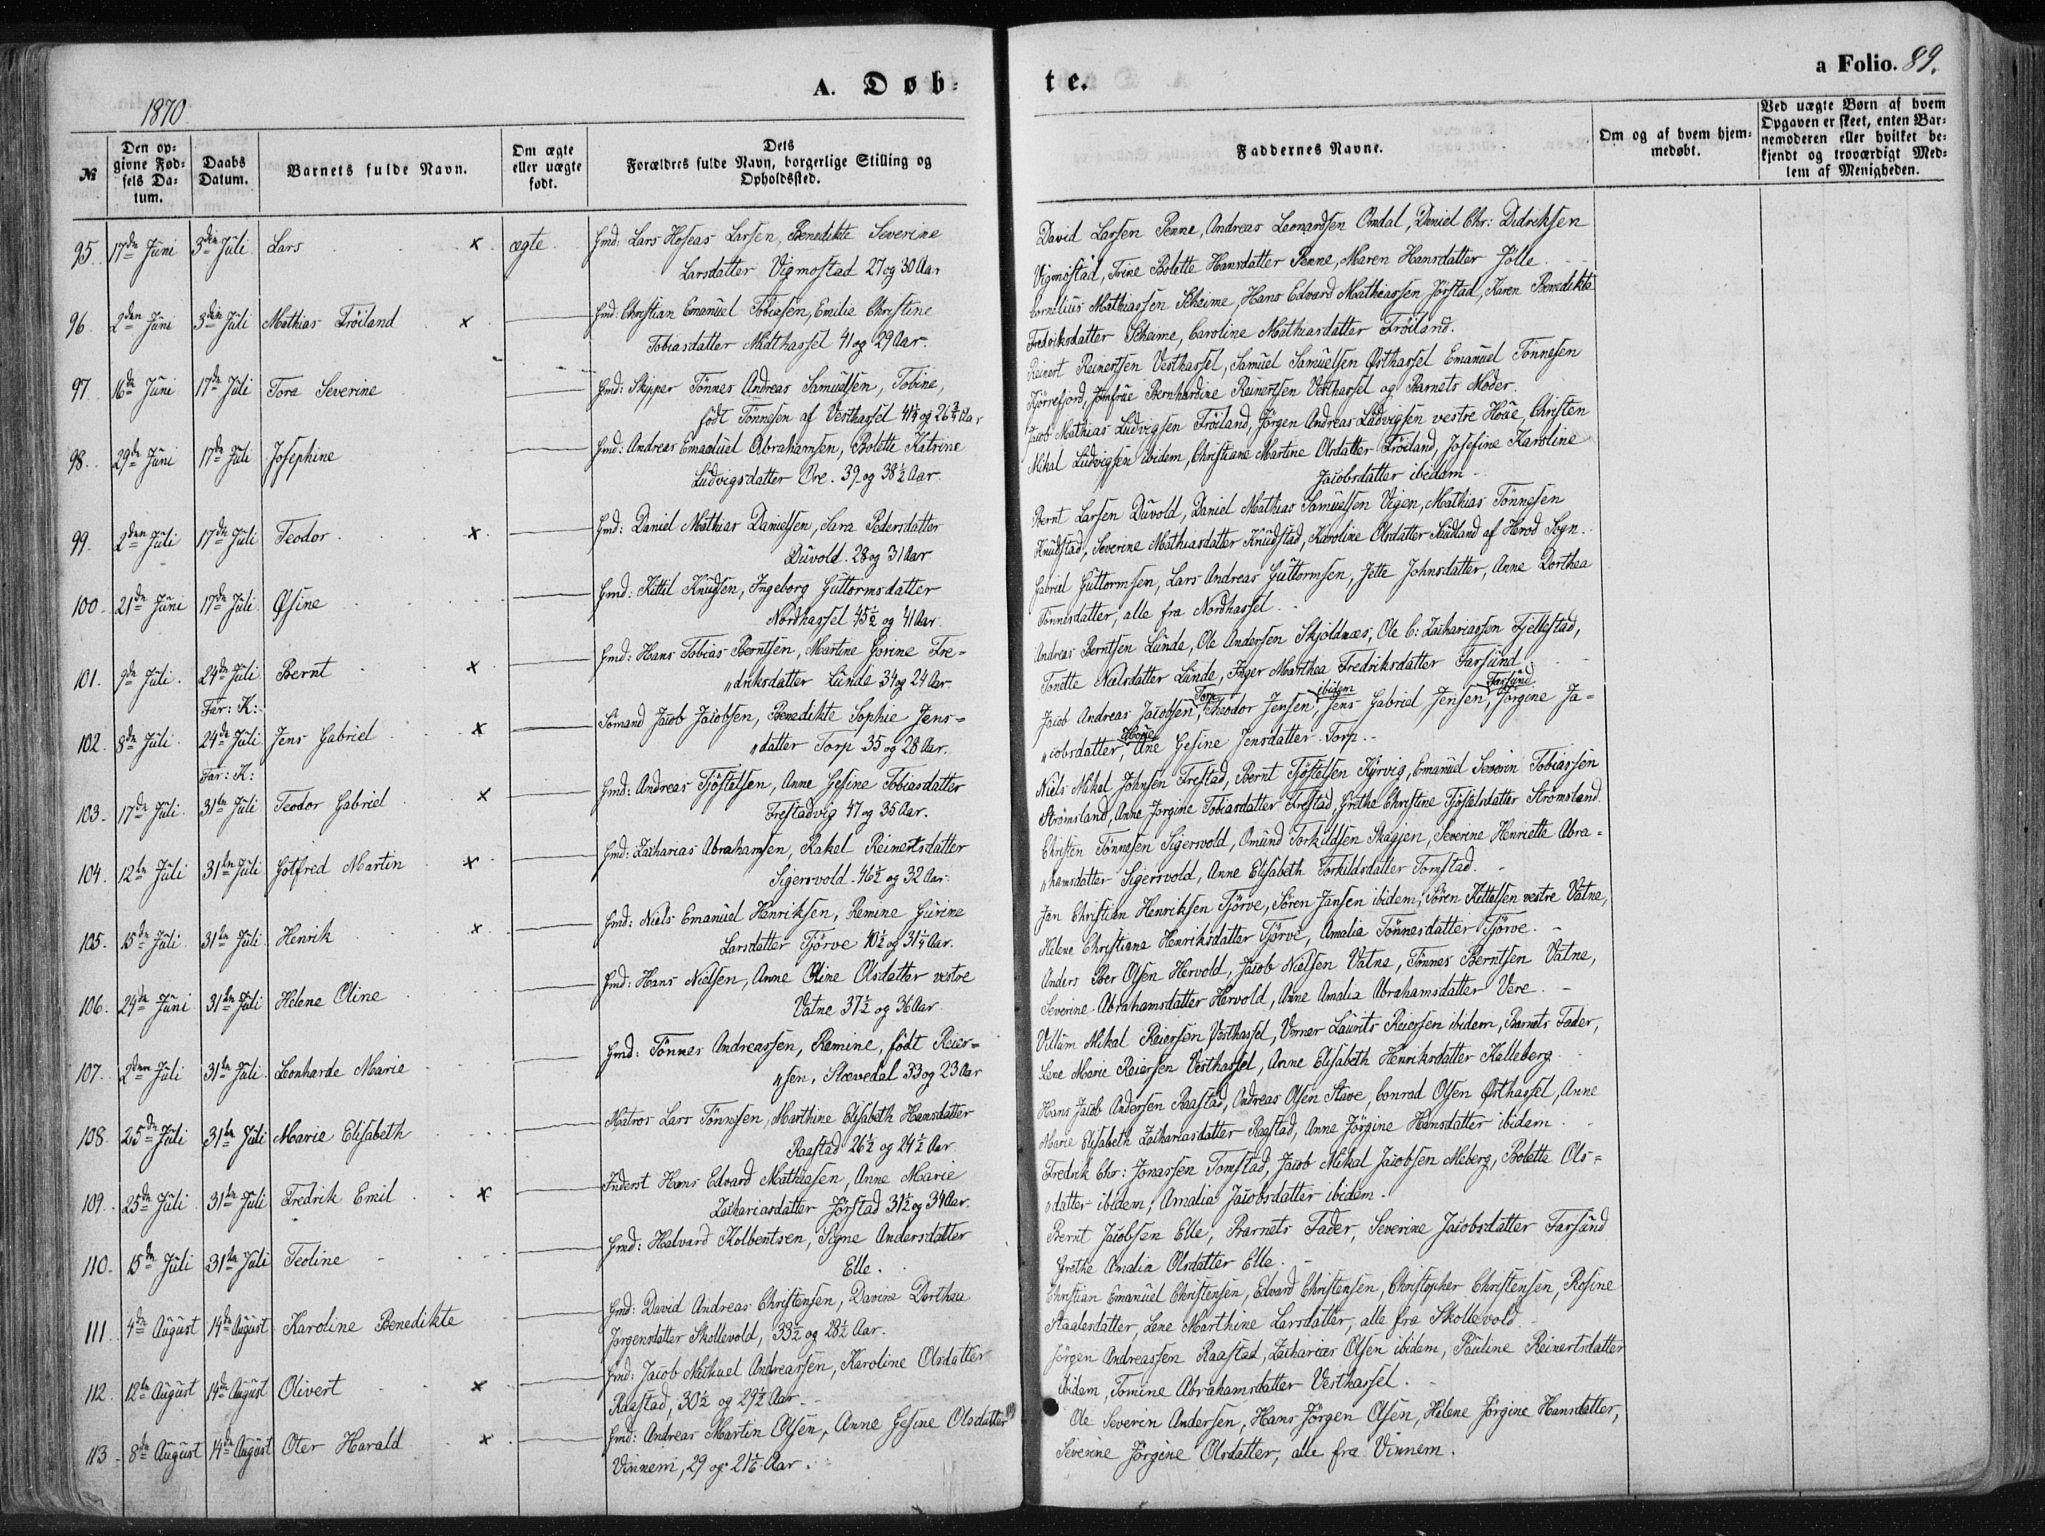 A. Døb-
te.
a Folio. 89.
1870.
№
Den opgivne Fødsels Datum.
Daabs Datum.
Barnets fulde Navn.
Om ægte eller uægte født.
Dets Forældres fulde Navn, borgerlige Stilling og Opholdssted.
Faddernes Navne.
Om og af hvem hjemmedøbt.
Ved uægte Børn af hvem Opgaven er skeet, enten Barnemoderen eller hvilket bekjendt og troværdigt Medlem af Menigheden.
95. 17de Juni 3die Juli Lars x ægte Gmd: Lars Hoseas Larsen, Benedikte Severine
Larsdatter Vigmostad 27 og 30 Aar
David Larsen Penne, Andreas Leonardsen Omdal, Daniel Chr: Didriksen
Vigmostad, Trine Bolette Hansdatter Penne, Maren Hansdatter Jølle.
96. 2den Juni 3die Juli Mathias Frøiland x Gmd: Christian Emanuel Tobiasen, Emilie Christine
Tobiasdatter Midthassel 41 og 29 Aar.
Cornelius Mathiassen Skeime, Hans Edvard Mathiassen Jørstad, Karen Benedikte
Fredriksdatter Skeime, Caroline Mathiasdatter Frøiland.
97. 16de Juni 17de Juli Tora Severine Gmd: Skipper Tønnes Andreas Samuelsen, Tobine,
født Tønnesen af Vesthassel 41¼ og 26¾ Aar
Reinert Reinertsen Vesthassel, Samuel Samuelsen Østhassel Emanuel Tønnesen
Kjørrefjord, Jomfrue Bernhardine Reinertsen Vesthassel og Barnets Moder.
98. 29de Juni 17de Juli Josephine Gmd: Andreas Emanuel Abrahamsen, Bolette Katrine
Ludvigsdatter Ore. 39 og 38½ Aar.
Jacob Mathias Ludvigsen Frøiland, Jørgen Andreas Ludvigsen vestre Hoüe, Christen
Mikal Ludvigsen ibidem, Christiane Martine Olsdatter Frøiland, Josefine Karoline
Jacobsdatter ibidem
99. 2den Juli 17de Juli Teodor x Gmd: Daniel Mathias Danielsen, Sara Pedersdatter
Duvold. 28 og 31 Aar
Bernt Larsen Duvold, Daniel Mathias Samuelsen Vigen, Mathias Tønnesen
Knudstad, Severine Mathiasdatter Knudstad, Karoline Olsdatter Rudland af Herod Sogn.
100. 21de Juni 17de Juli Øsine Gmd: Kittil Knudsen, Ingeborg Guttormsdatter
Nordhassel 45½ og 41 Aar.
Gabriel Guttormsen, Lars Andreas Guttormsen, Jette Johnsdatter, Anne Dorthea
Tønnesdatter, alle fra Nordhassel.
101. 9de Juli. 24de Juli Bernt x Gmd: Hans Tobias Berntsen, Martine Gorine Fre-
Far: K:
"driksdatter Lunde 34 og 24 Aar.
Andreas Berntsen Lunde, Ole Andersen Skjoldnæs, Ole C: Zachariassen Fjellestad,
Tonette Nielsdatter Lunde, Inger Marthea Fredriksdatter Farsund.
102. 8de Juli. 24de Juli Jens Gabriel x Sømand Jacob Jacobsen, Benedikte Sophie Jens-
Far: K:
"datter Torp 35 og 28 Aar.
Jacob Andreas Jacobsen Torp, Theodor Jensen ibidem, Jens Gabriel Jensen Farsund, Jørgine Ja-
"cobsdatter Hoüe, Ane Gesine Jensdatter Torp.
103. 17de Juli. 31te Juli Teodor Gabriel x Gmd: Andreas Tjøstelsen, Anne Gesine Tobiasdatter
Frestadvig 47 og 35 Aar.
Niels Mikal Johnsen Frestad, Bernt Tjøstelsen Kyrvig, Emanuel Severin Tobiassen
Strømsland, Anne Jørgine Tobiasdatter Frestad, Grethe Christine Tjøstelsdatter Strømsland.
104. 12te Juli 31te Juli Gotfred Martin x Gmd: Zacharias Abrahamsen, Rakel Reinertsdatter
Sigersvold. 46½ og 32 Aar.
Christen Tønnesen Sigersvold, Omund Torkildsen Skagjen, Severine Henriette Abra-
"hamsdatter Sigersvold, Anne Elisabeth Torkildsdatter Tomstad.
105. 15de Juli 31te Juli Henrik x Gmd: Niels Emanuel Henriksen, Remine Gurine
Larsdatter Tjørve 40½ og 31¼ Aar.
Jan Christian Henriksen Tjørve, Søren Jansen ibidem, Søren Kittelsen vestre Vatne,
Helene Christiane Henriksdatter Tjørve, Amalia Tønnesdatter Tjørve.
106. 24de Juni 31te Juli Helene Oline Gmd: Hans Nielsen, Anne Oline Olsdatter vestre
Vatne 37½ og 36 Aar.
Anders Ber Olsen Hervold, Jacob Nielsen Vatne, Tønnes Berntsen Vatne,
Severine Abrahamsdatter Hervold, Anne Amalia Abrahamsdatter Vere.
107. 2den Juli 31te Juli Leonharde Marie Gmd: Tønnes Andreassen, Remine, født Reier-
"sen, Slævedal 33 og 23 Aar
Villum Mikal Reiersen Vesthassel, Verner Laurits Reiersen ibidem, Barnets Fader,
Lene Marie Reiersen Vesthassel, Anne Elisabeth Henriksdatter Kalleberg.
108. 25de Juli 31te Juli Marie Elisabeth Matros Lars Tønnesen, Marthine Elisabeth Hansdatter
Raastad 26½ og 24½ Aar.
Hans Jacob Andersen Raastad, Andreas Olsen Stave, Conrad Olsen Østhassel, Anne
Marie Elisabeth Zachariasdatter Raastad, Anne Jørgine Hansdatter ibidem.
109. 25de Juli 31te Juli Fredrik Emil x Inderst Hans Edvard Mathiassen, Anne Marie
Zachariasdatter Jørstad 31½ og 34 Aar.
Fredrik Chr: Jonassen Tomstad, Jacob Mikal Jacobsen Meberg, Bolette Ols-
"datter ibidem, Amalia Jacobsdatter ibidem.
110. 15de Juli 31te Juli Teoline Gmd: Halvard Kolbentsen, Signe Andersdatter
Elle.
Bernt Jacobsen Elle, Barnets Fader, Severine Jacobsdatter Farsund
Grethe Amalia Olsdatter Elle.
111. 4de August 14de August Karoline Benedikte Gmd: David Andreas Christensen, Davine Dorthea
Jørgensdatter Skollevold, 33½ og 28½ Aar.
Christian Emanuel Christensen, Edvard Christensen, Christopher Christensen, Rosine
Staalesdatter, Lene Marthine Larsdatter, alle fra Skollevold.
112. 12te August 14de August Olivert x Gmd: Jacob Michael Andreassen, Karoline Olsdatter
Raastad, 30½ og 29½ Aar.
Jørgen Andreassen Raastad, Zacharias Olsen ibidem, Pauline Reinertsdatter
ibidem, Tomine Abrahamsdatter Vesthassel.
113. 8de August 14de August Oter Harald x Gmd: Andreas Martin Olsen, Anne Gesine Olsdatter
Vinnem, 29 og 21⅙ Aar.
Ole Severin Andersen, Hans Jørgen Olsen, Helene Jørgine Hansdatter,
Severine Jørgine Olsdatter, alle fra Vinnem.